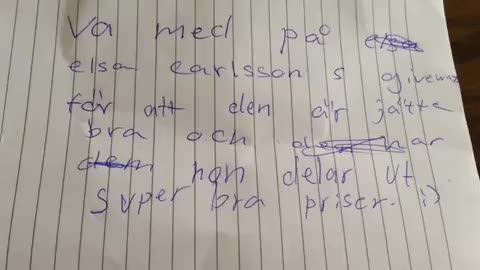 Va med på
elsa carlsson s giveway
för att den är jätte
bra och
hon delar ut
super bra priser. :)